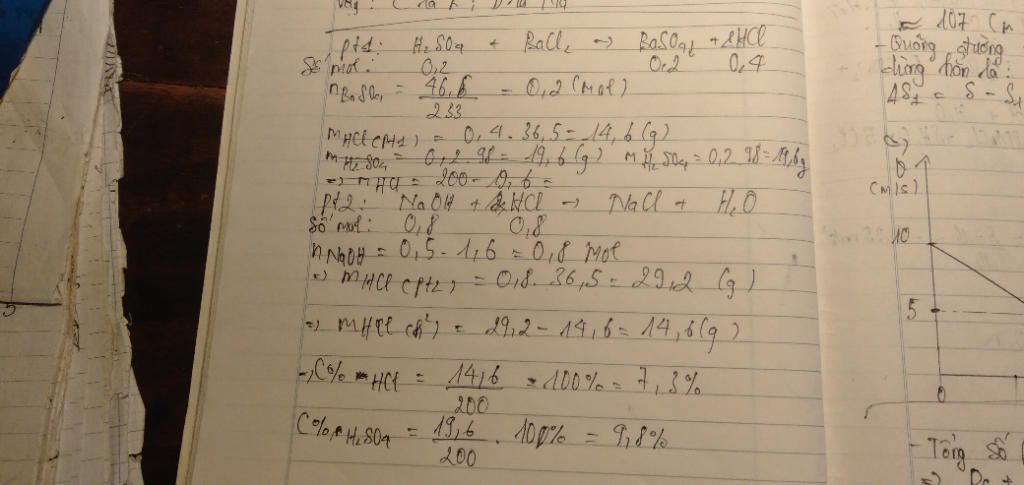 pt1: H₂SO₄ + BaCl₂ → BaSO₄↓ + 2HCl
Số mol: 0,2 0,2 0,4
nBaSO₄ = 46,6/233 = 0,2 (mol)
mHCl(pt1) = 0,4 . 36,5 = 14,6 (g)
mH₂SO₄ = 0,2 . 98 = 19,6 (g) mH₂SO₄ = 0,2 . 98 = 19,6g
=> mHCl = 200 - 19,6 =
pt2: NaOH + HCl → NaCl + H₂O
Số mol: 0,8 0,8
nNaOH = 0,5 . 1,6 = 0,8 mol
=> mHCl (pt2) = 0,8 . 36,5 = 29,2 (g)
=> mHCl (bđ) = 29,2 - 14,6 = 14,6 (g)
→ C% HCl = 14,6/200 . 100% = 7,3%
C% H₂SO₄ = 19,6/200 . 100% = 9,8%
≈ 107 (m
- Quãng đường
dừng hẳn là:
ΔS₁ = S - S₁
c,
(m/s)
10
5
0
- Tổng số